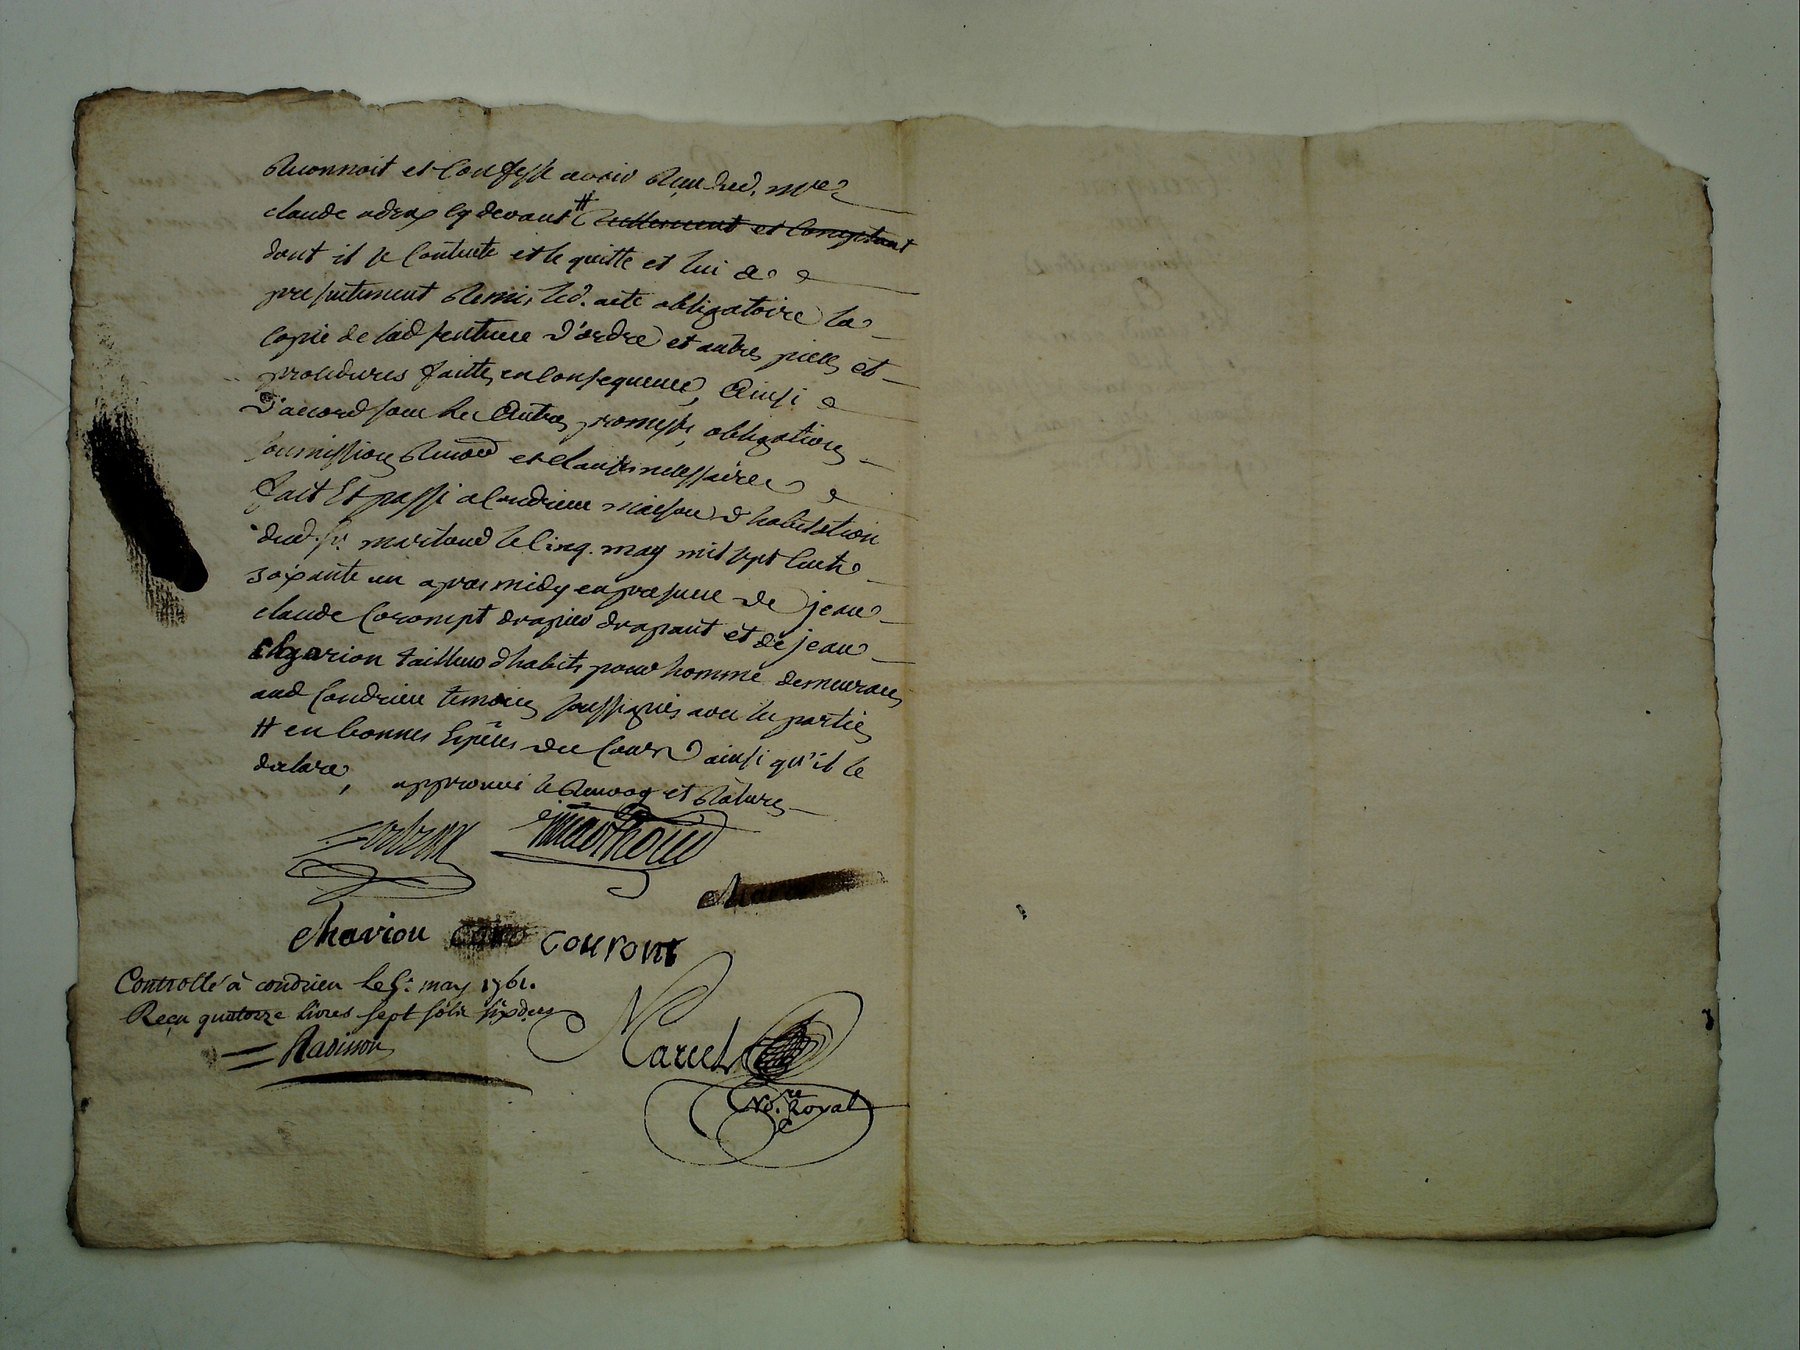 Reconnoit et confesse avoir Reçu dud. me
claude cy devant # Reellement et comptant
dont il se contente et le quitte et lui a
presentement Remis led. acte obligatoire la
copie de lad sentence d'ordre et autres pieces et
procedures faittes en consequence, Ainsi
D'accord sous les Autres promesses, obligations
soumissions Renon et clauses necessaires
fait Et passé a Condrieu maison d'habitation
dud. sr. le cinq. may mil sept cents
soixante un apres midy en presence de jean
claude Corompt drapier drapant et de jean
charion tailleur d'habits pour homme demeurans
aud Condrieu temoins soussignés avec les parties
# en bonnes Espèces du Cours ainsi qu'il le
declare, approuvé le Renvoy et Rature
charion couront
Controllé à condrieu le 5e. may 1761.
Reçu quatorze livres sept sols six den
Marcel
No.re Royal